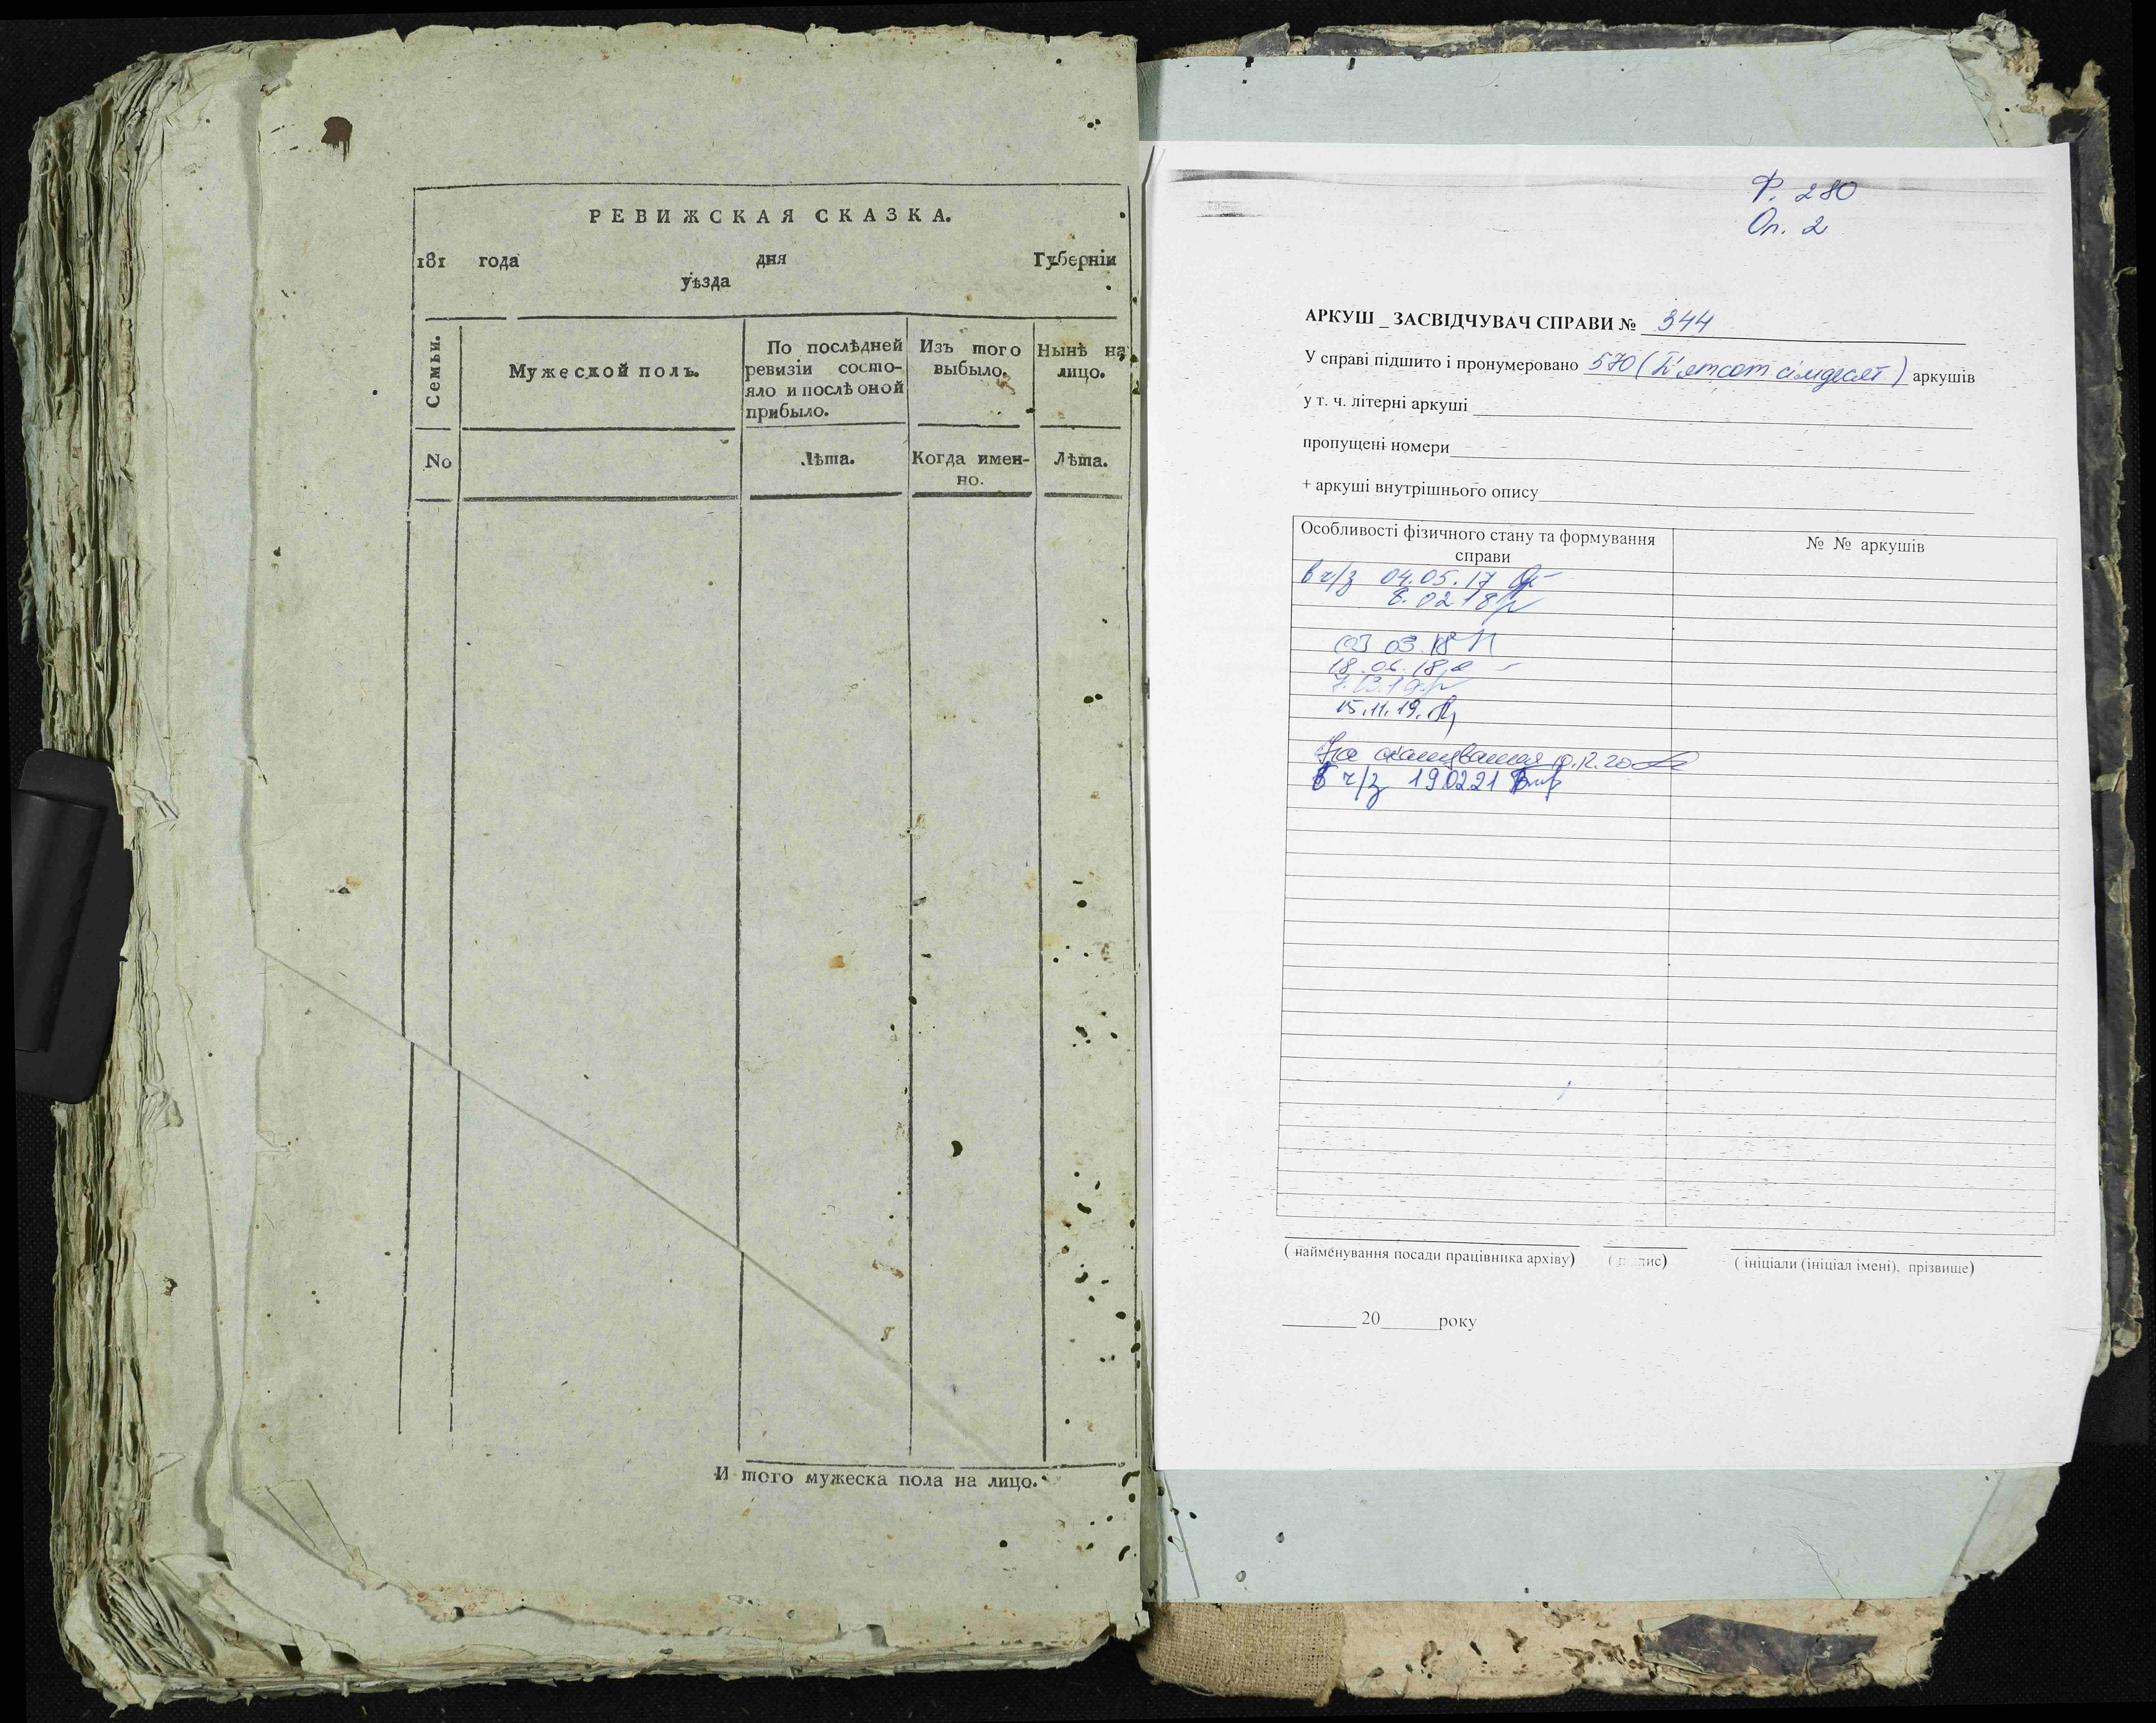 РЕВИЖСКАЯ СКАЗКА.
181 года дня Губерніи
уѣзда
Семьи.
Мужеской полъ.
По послѣдней
ревизіи состо-
яло и послѣ оной
прибыло.
Изъ того
выбыло.
Нынѣ на
лицо.
No
Лѣта.
Когда имен-
но.
Лѣта.
И того мужеска пола на лицо.
Ф. 280
Оп. 2
АРКУШ _ ЗАСВІДЧУВАЧ СПРАВИ № 344
У справі підшито і пронумеровано 570 (П'ятсот сімдесят) аркушів
у т. ч. літерні аркуші
пропущені номери
+ аркуші внутрішнього опису
Особливості фізичного стану та формування
справи
№ № аркушів
в ч/з 04.05.17
8.02 18
03 03.18
18.06.18
7.03.19
15.11.19.
На сканування 10.12.20
В ч/з 190221
( найменування посади працівника архіву) (підпис) ( ініціали (ініціал імені), прізвище)
20 року